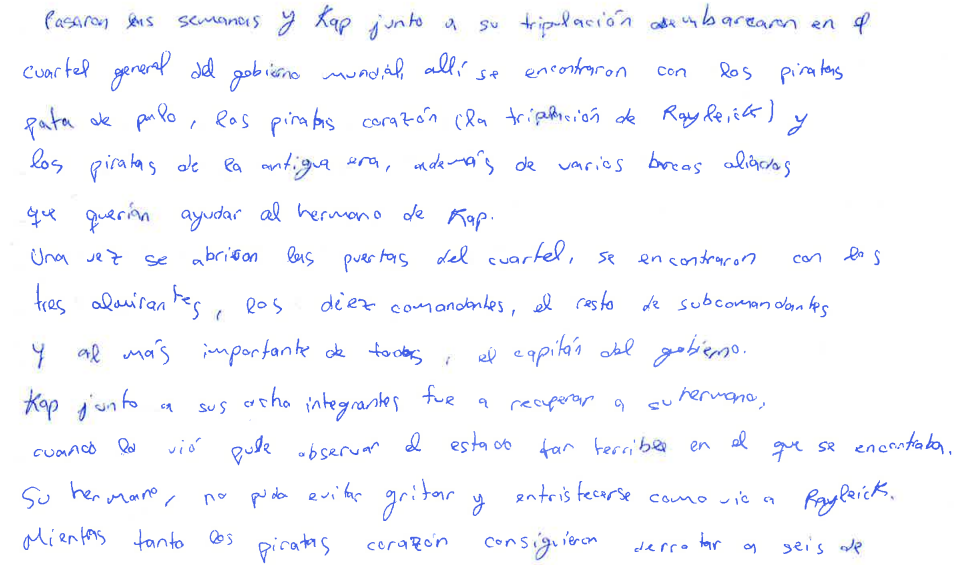 Pasaron las semanas y Kap junto a su tripulación desembarcaron en el
cuartel general del gobierno mundial, allí se encontraron con los piratas
pata de palo, los piratas corazón (la tripulación de Rayleick) y
los piratas de la antigua era, además de varios barcos aliados
que querían ayudar al hermano de Kap.
Una vez se abrieron las puertas del cuartel, se encontraron con los
tres almirantes, los diez comandantes, el resto de subcomandantes
y al más importante de todos, el capitán del gobierno.
Kap junto a sus ocho integrantes fue a recuperar a su hermano,
cuando lo vió pude observar el estado tan terrible en el que se encontraba.
Su hermano, no pudo evitar gritar y entristecerse como vio a Rayleick.
Mientas tanto los piratas corazón consiguieron derrotar a seis de